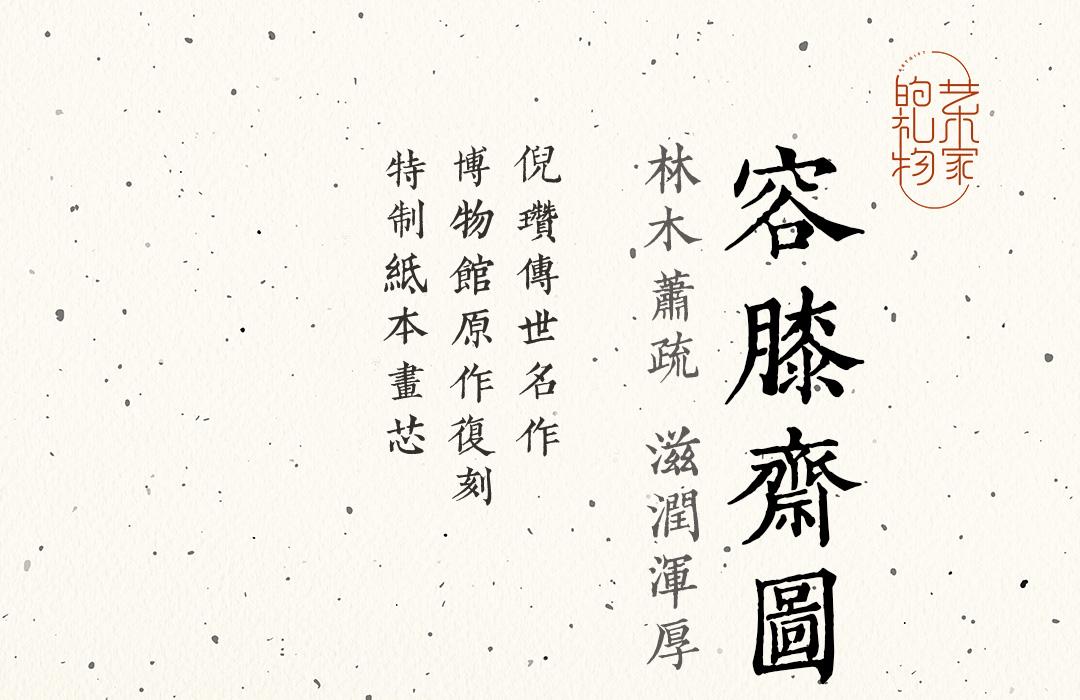 艺术家
的礼物
容膝齋圖
林木蕭疏 滋潤渾厚
倪瓚傳世名作
博物館原作復刻
特制紙本畫芯